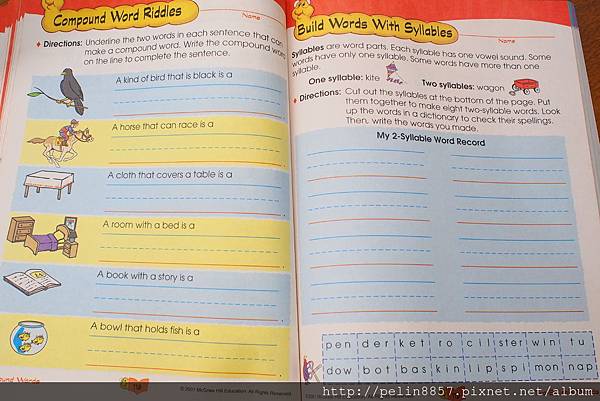 Compound Word Riddles
Name
Directions: Underline the two words in each sentence that can
make a compound word. Write the compound word
on the line to complete the sentence.
A kind of bird that is black is a
A horse that can race is a
A cloth that covers a table is a
A room with a bed is a
A book with a story is a
A bowl that holds fish is a
ound Words
© 2001 McGraw-Hill Education. All Rights Reserved.
Build Words With Syllables
Name
Syllables are word parts. Each syllable has one vowel sound. Some
words have only one syllable. Some words have more than one
syllable.
One syllable: kite
Two syllables: wagon
Directions: Cut out the syllables at the bottom of the page. Put
them together to make eight two-syllable words. Look
up the words in a dictionary to check their spellings.
Then, write the words you made.
My 2-Syllable Word Record
pen der ket ro cil ster win tu
dow bot bas kin lip spi mon nap
http://pelin8857.pixnet.net/album